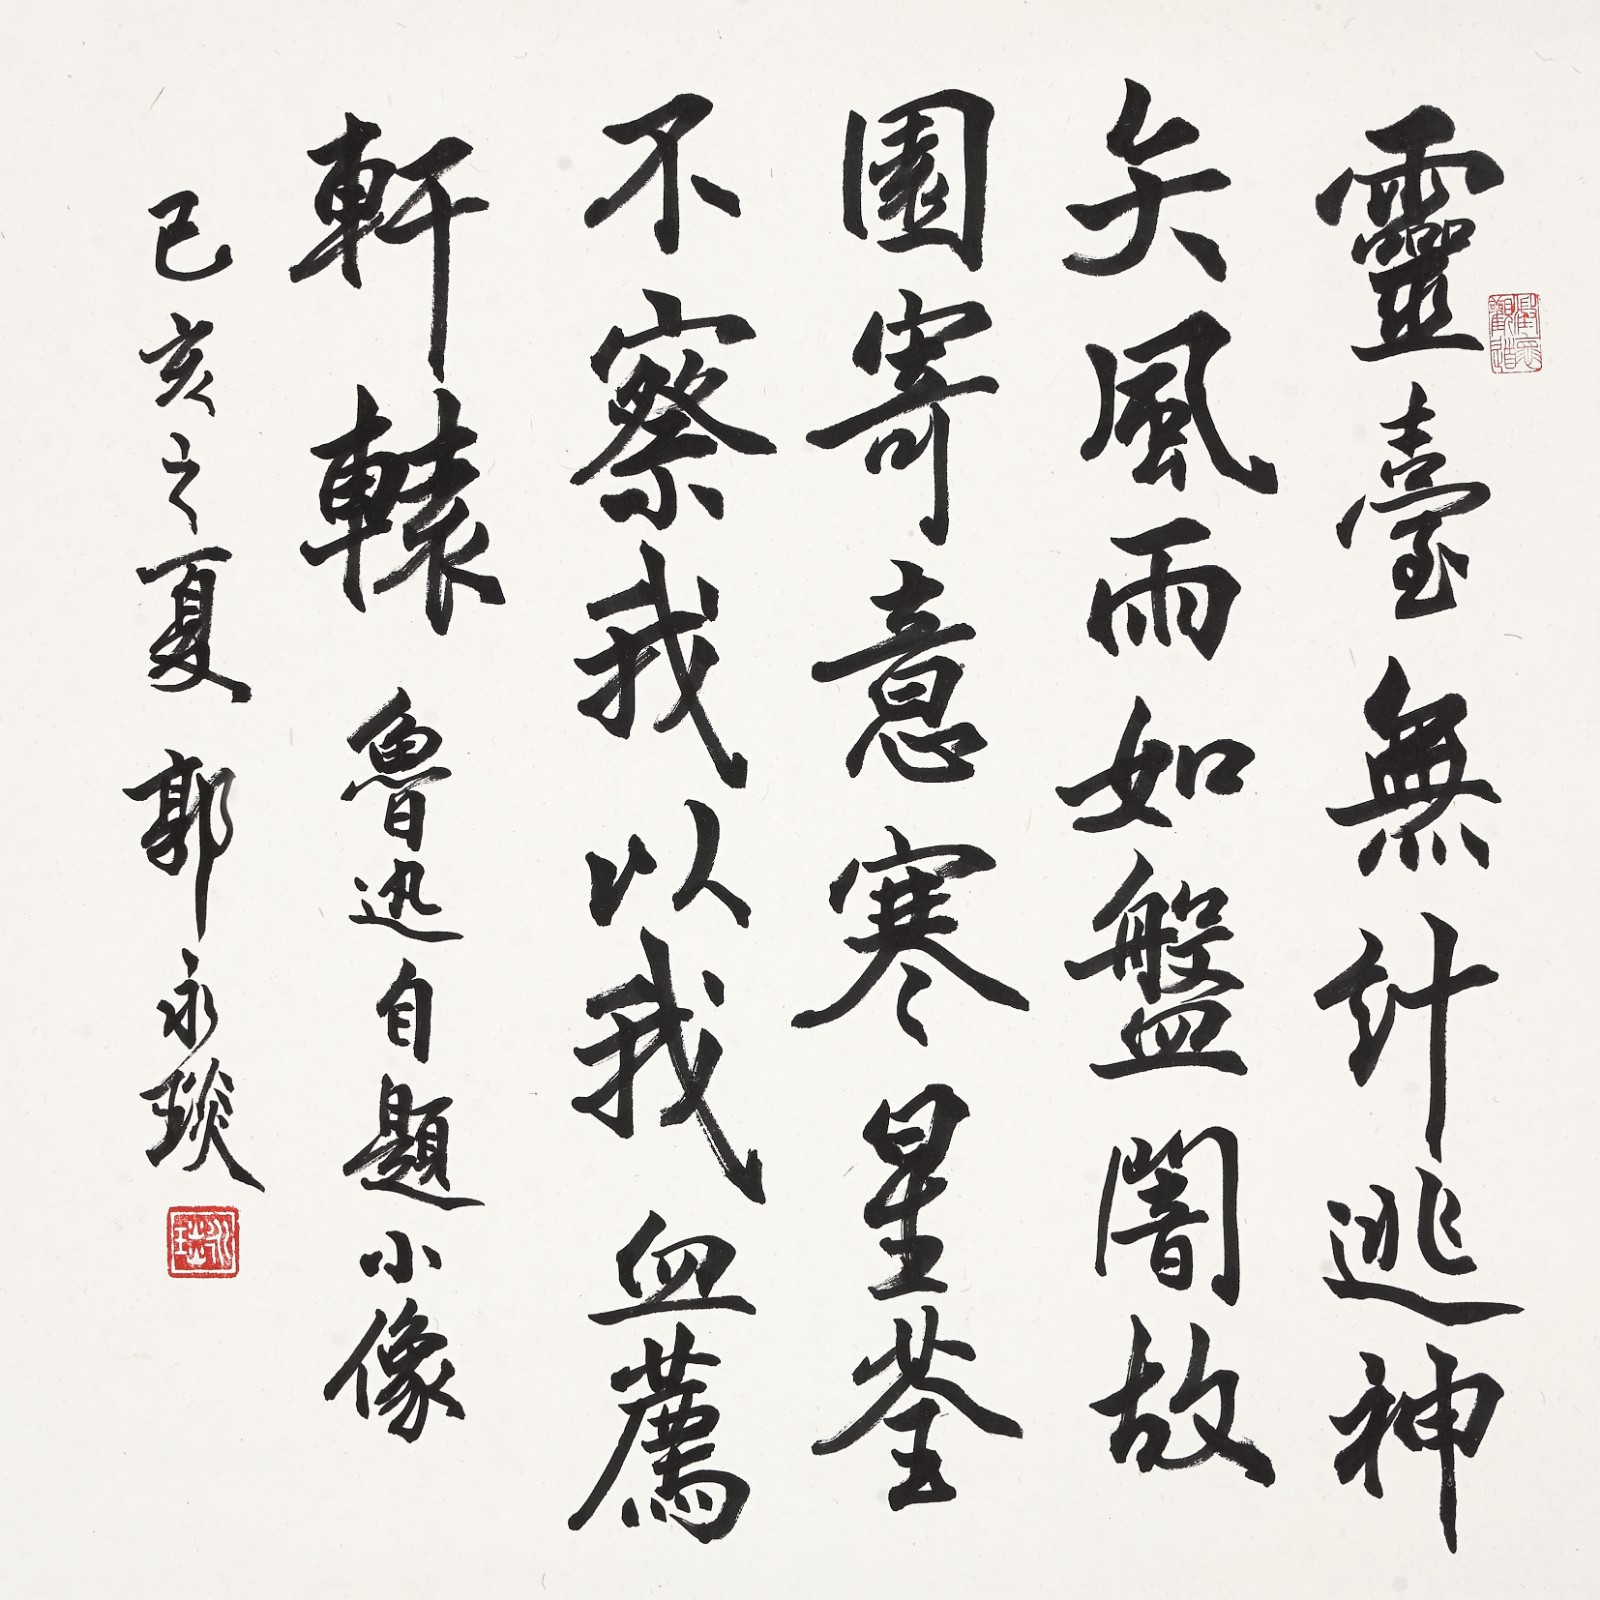 靈臺無計逃神
矢風雨如盤闇故
園寄意寒星荃
不察我以我血薦
軒轅 魯迅自題小像
己亥之夏 郭永琰